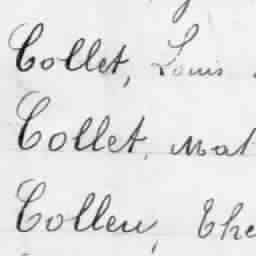 Collet, Louis
Collet, Mat
Colleu, The